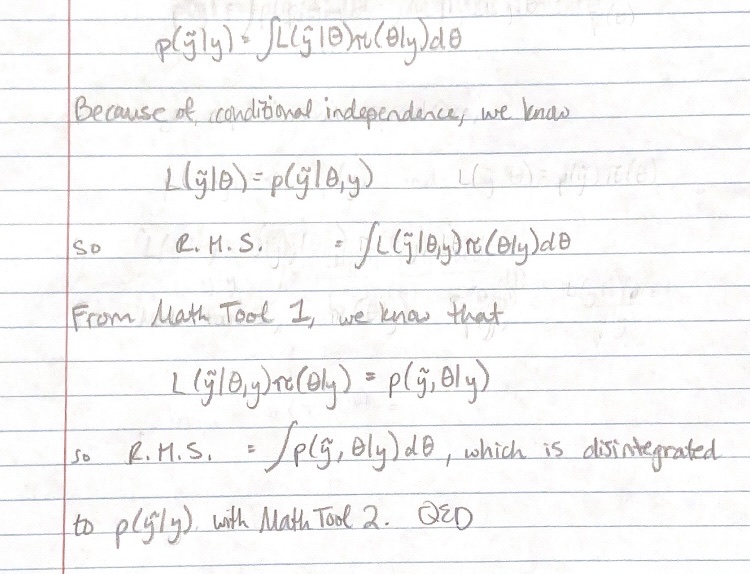 p(ỹ|y) = ∫L(ỹ|θ)π(θ|y)dθ
Because of conditional independence, we know
L(ỹ|θ) = p(ỹ|θ,y)
so R.H.S. = ∫L(ỹ|θ,y)π(θ|y)dθ
From Math Tool 1, we know that
L(ỹ|θ,y)π(θ|y) = p(ỹ,θ|y)
so R.H.S. = ∫p(ỹ,θ|y)dθ, which is disintegrated
to p(ỹ|y) with Math Tool 2. QED